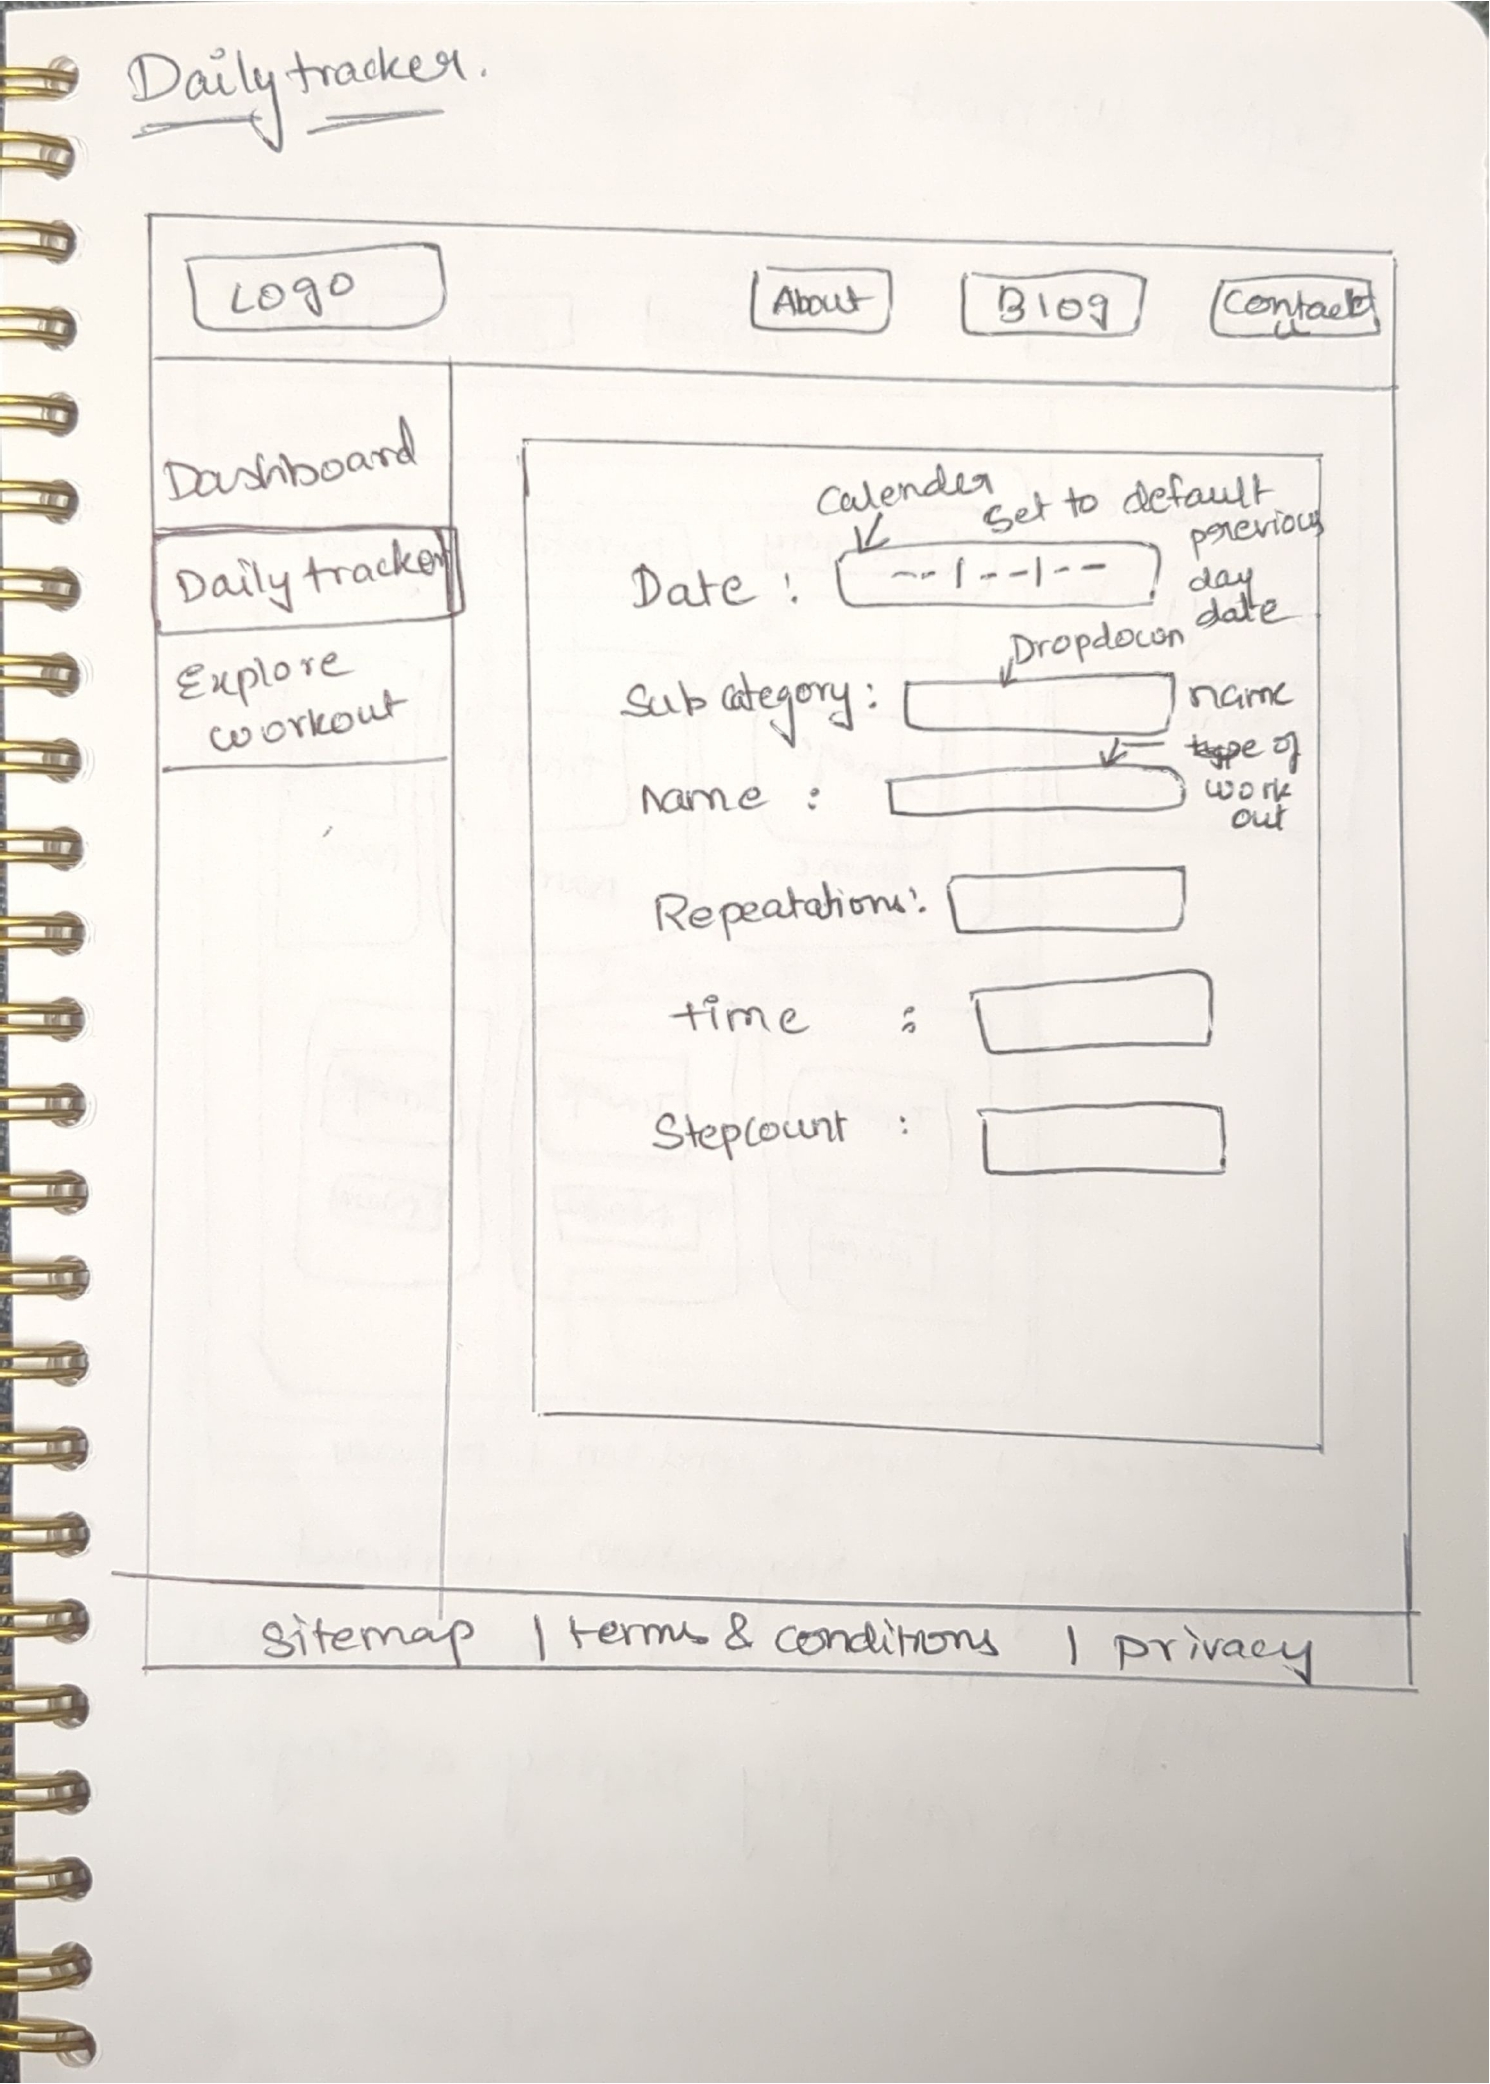 Daily tracker.
Logo
About
Blog
Contact
Dashboard
Daily tracker
Explore
workout
Calender
Set to default
previous
day
date
Date : --/--/--
Dropdown
Sub category :
name
type of
work
out
name :
Repeatations :
time :
Stepcount :
Sitemap | terms & conditions | privacy